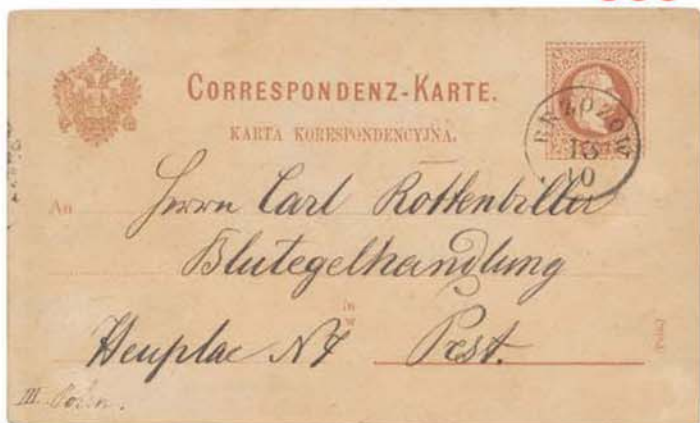 CORRESPONDENZ-KARTE.
KARTA KORESPONDENCYJNA.
BRZOZOW
13
10
An Herrn Carl Rottenbiller
Blutegelhandlung
in
w
Heuplac N 7 Pest.